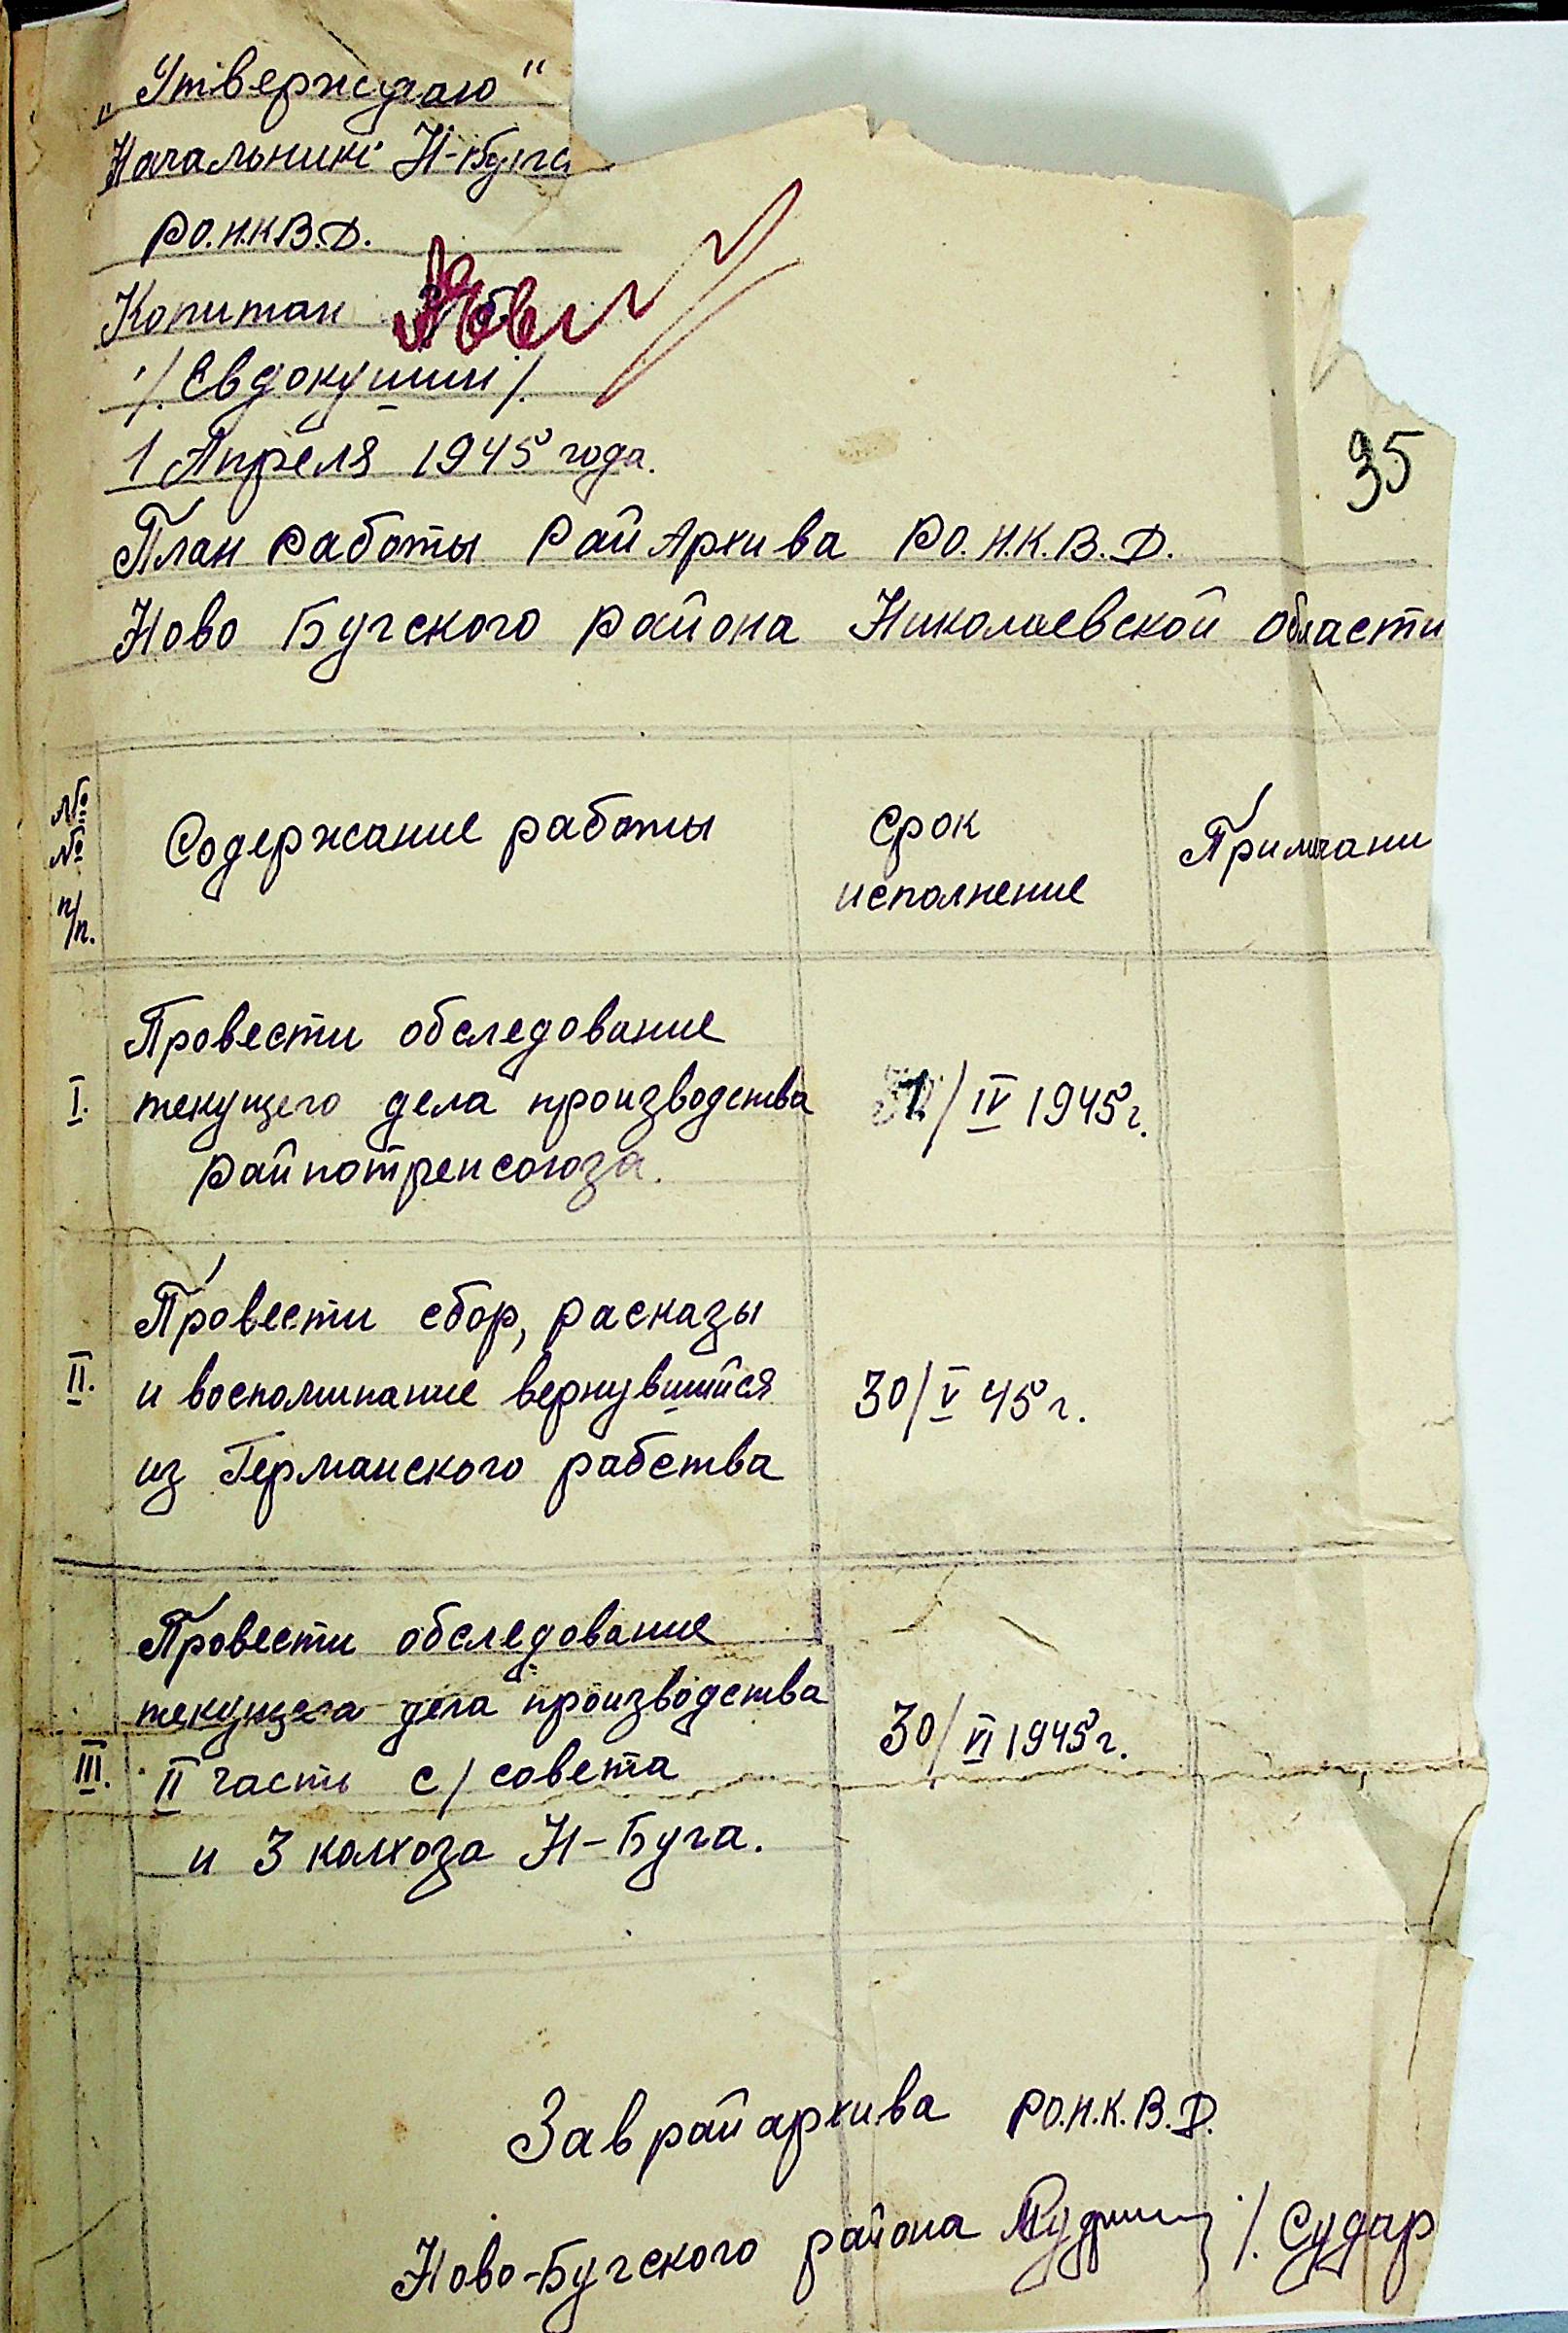 „Утверждаю“
Начальник Н-Буга
РО.Н.К.В.Д.
Копитан
/.Евдокушин/.
1 Апреля 1945 года.
35
План работы РайАрхива РО.Н.К.В.Д.
Ново Бугского района Николаевской области
№№ п/п.
Содержание работы
Срок
исполнение
Примечани
Провести обследование
I. текущего дела производства /IV 1945г.
райпотренсоюза.
Провести сбор, расказы
II. и воспоминание вернувшийся 30/V 45г.
из Германского рабства
Провести обследование
текущега дела производства
30/VI 1945г.
III. II часть с/совета
и 3 колхоза Н-Буга.
Заврайархива РО.Н.К.В.Д.
Ново-Бугского района /. Судар